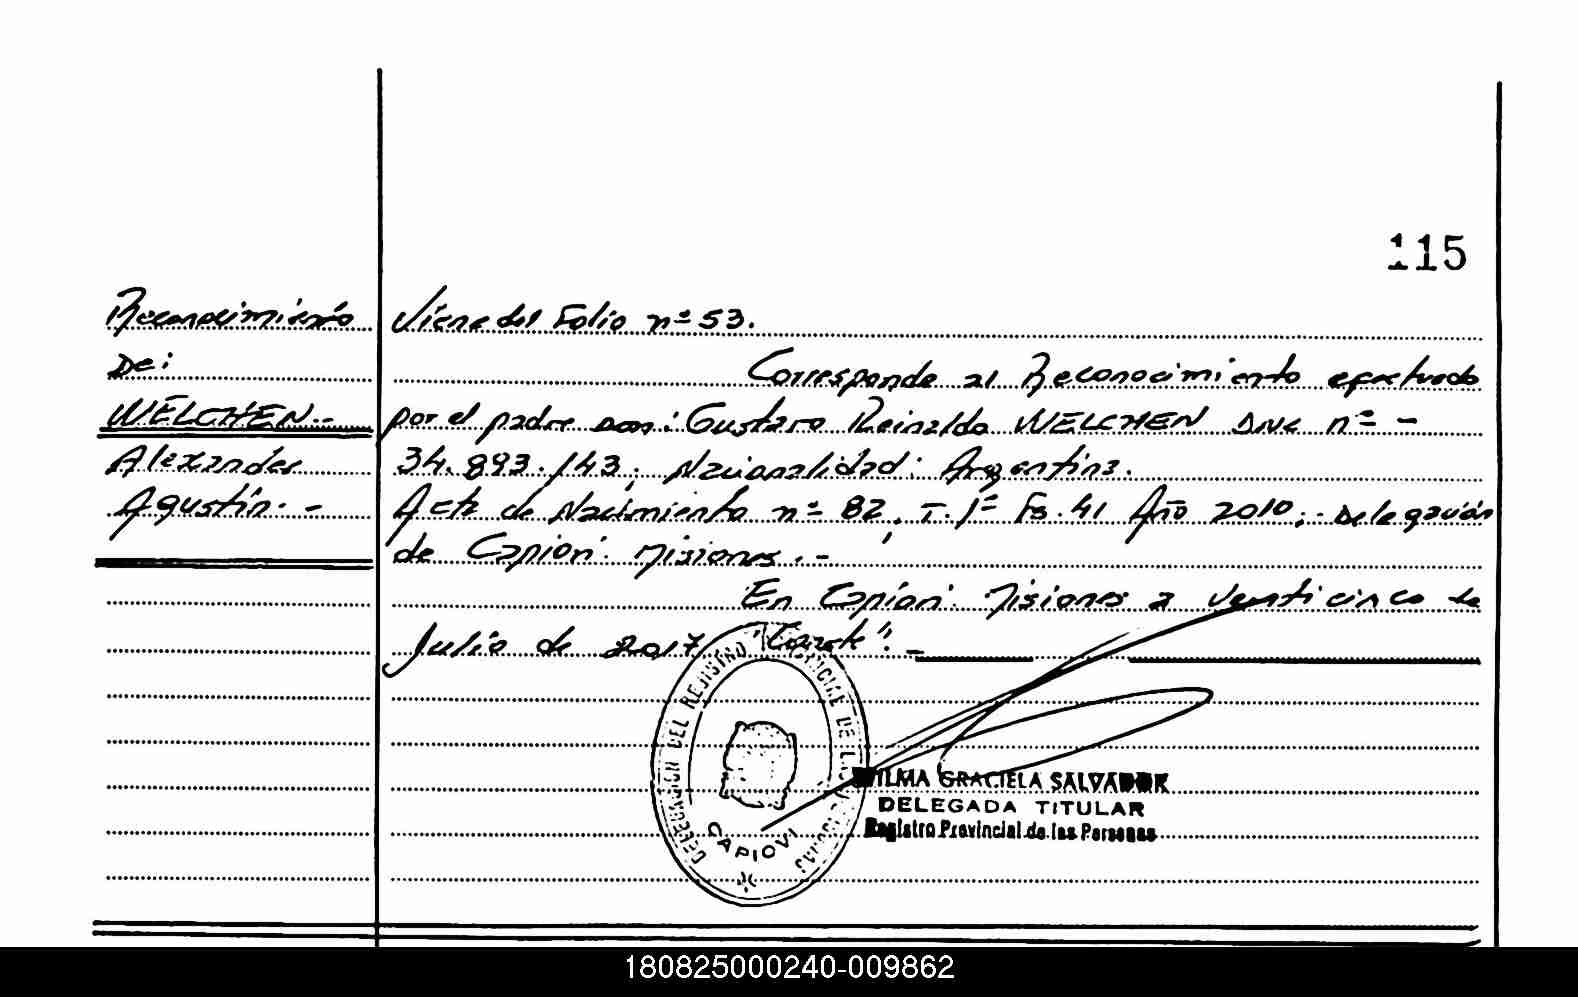 115
Reconocimiento
De:
WELCHEN.-
Alexander
Agustín.-
Viene del Folio nº 53.
Corresponde al Reconocimiento efectuado
por el padre don: Gustavo Reinaldo WELCHEN DNI nº -
34.893.143; Nacionalidad: Argentina.
Acta de Nacimiento nº 82, T. 1º Fs. 41 Año 2010; Delegación
de Capiovi. Misiones.-
En Capiovi. Misiones a veinticinco de
Julio de 2017
DELEGACION DEL REGISTRO PROVINCIAL DE LAS PERSONAS
CAPIOVI
WILMA GRACIELA SALVADOR
DELEGADA TITULAR
Registro Provincial de las Personas
180825000240-009862